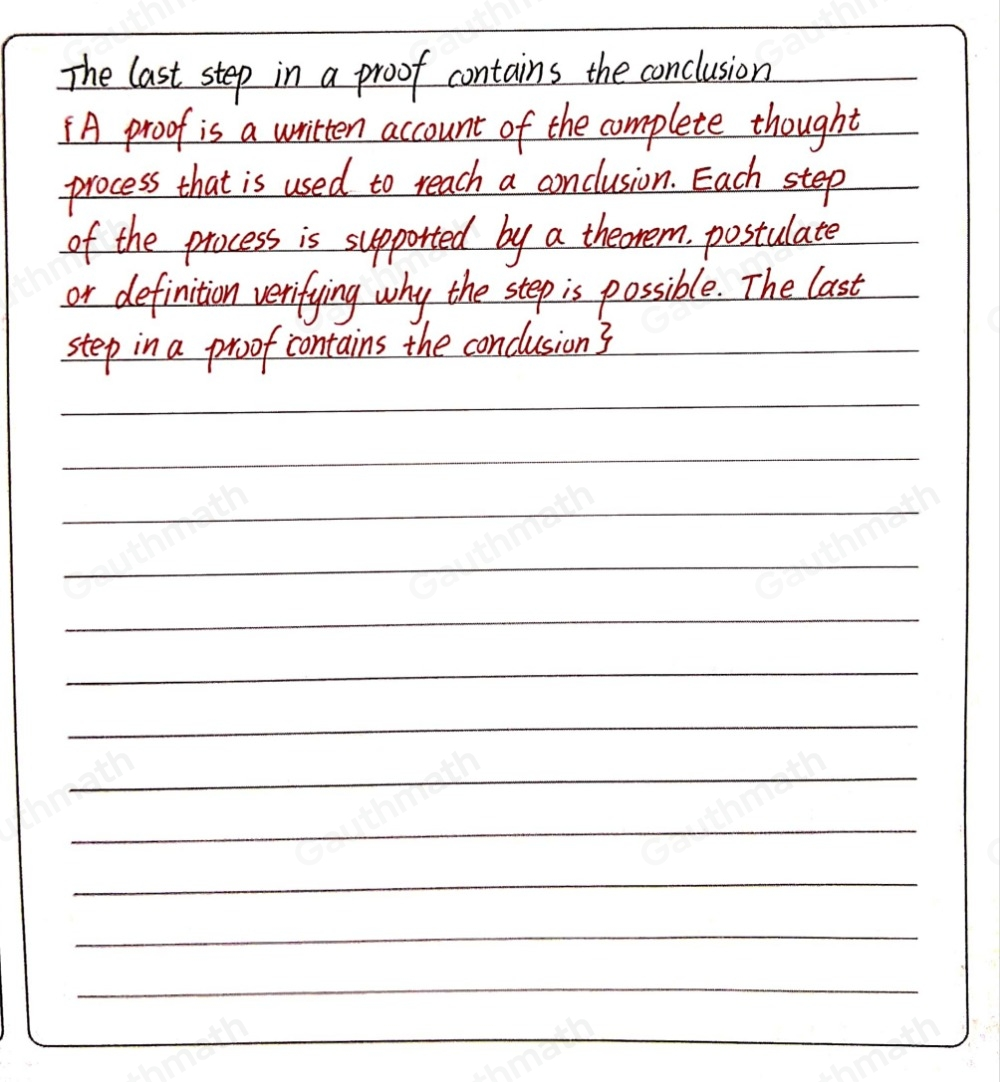 The last step in a proof contains the conclusion
{A proof is a written account of the complete thought
process that is used to reach a conclusion. Each step
of the process is supported by a theorem. postulate
or definition verifying why the step is possible. The last
step in a proof contains the conclusion}
Gauthmath
Gauthmath
Gauthmath
Gauthmath
Gauthmath